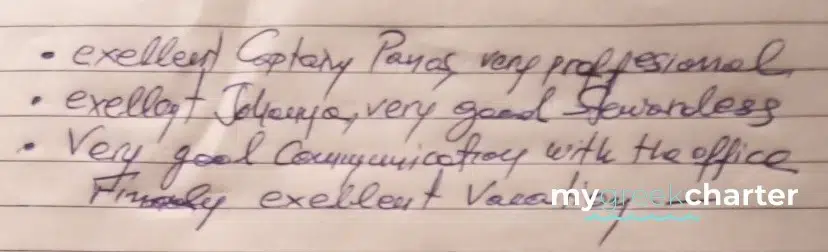 • exellent Captain Panos very proffesional
• exellent Johanna, very good Stewardess
• Very good Communication with the office
Finaly exellent Vacation
mygreekcharter